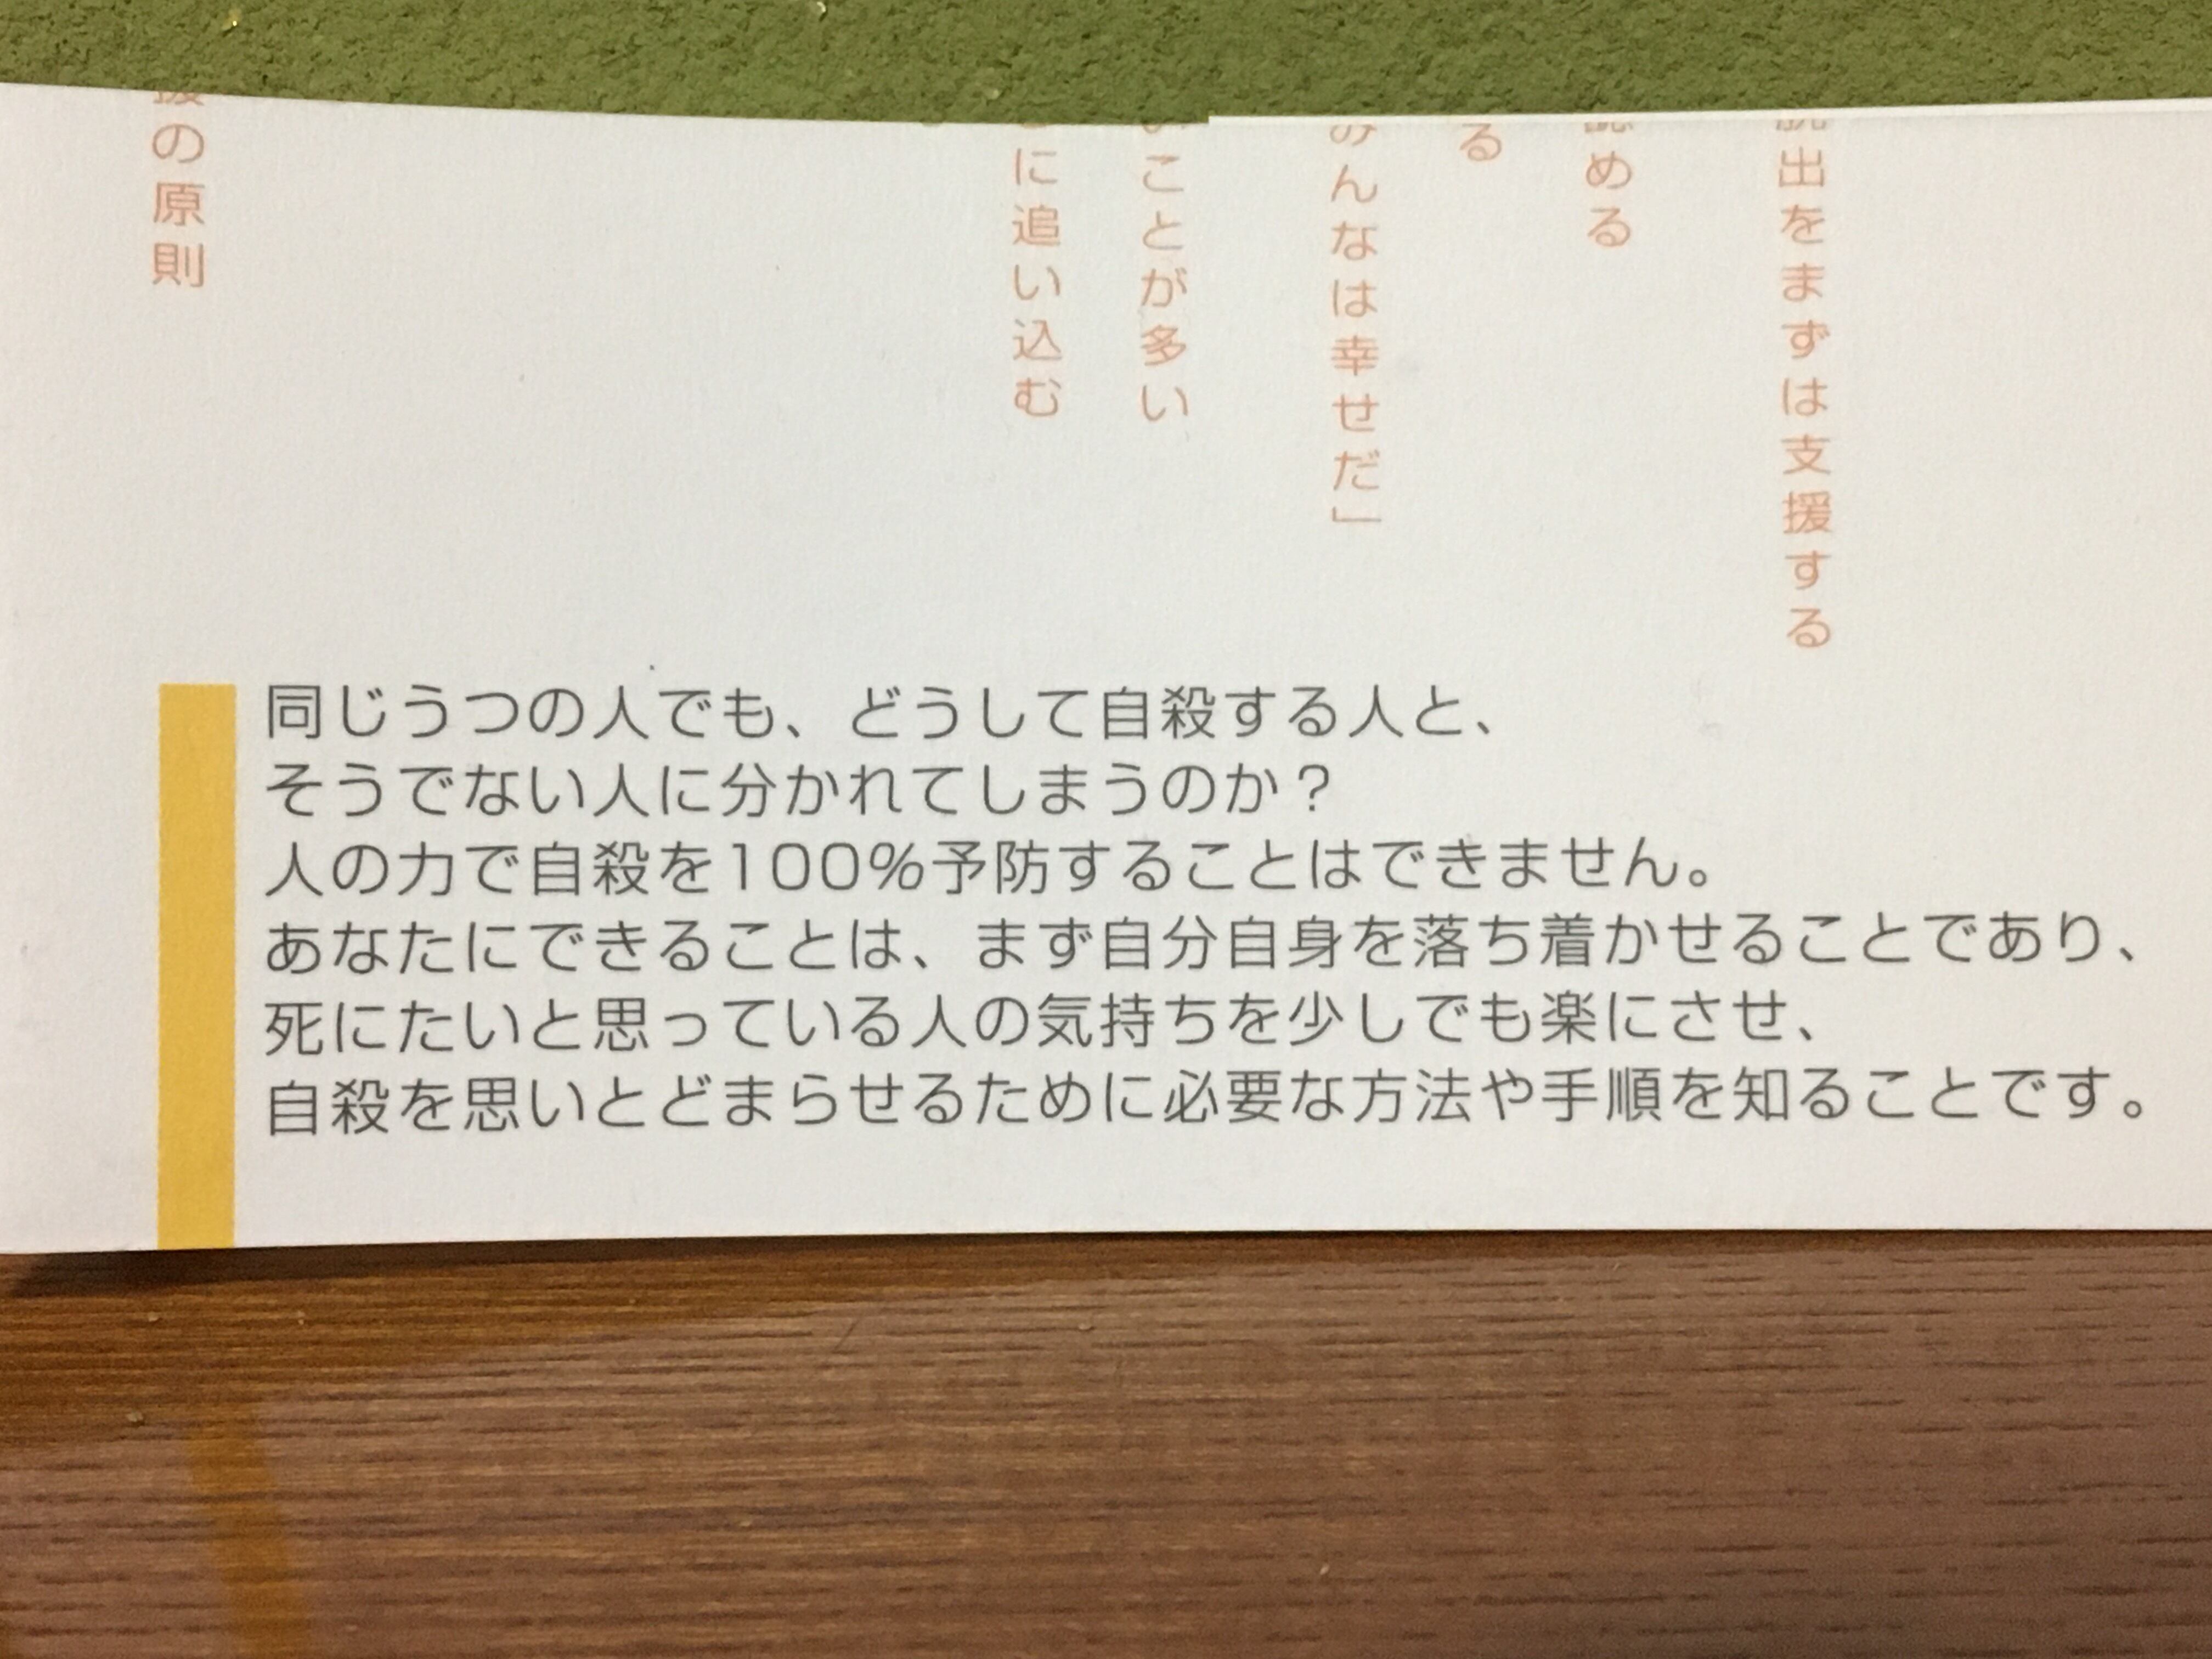 脱出をまずは支援する
認める
る
みんなは幸せだ」
いことが多い
に追い込む
援の原則
同じうつの人でも、どうして自殺する人と、
そうでない人に分かれてしまうのか？
人の力で自殺を100%予防することはできません。
あなたにできることは、まず自分自身を落ち着かせることであり、
死にたいと思っている人の気持ちを少しでも楽にさせ、
自殺を思いとどまらせるために必要な方法や手順を知ることです。